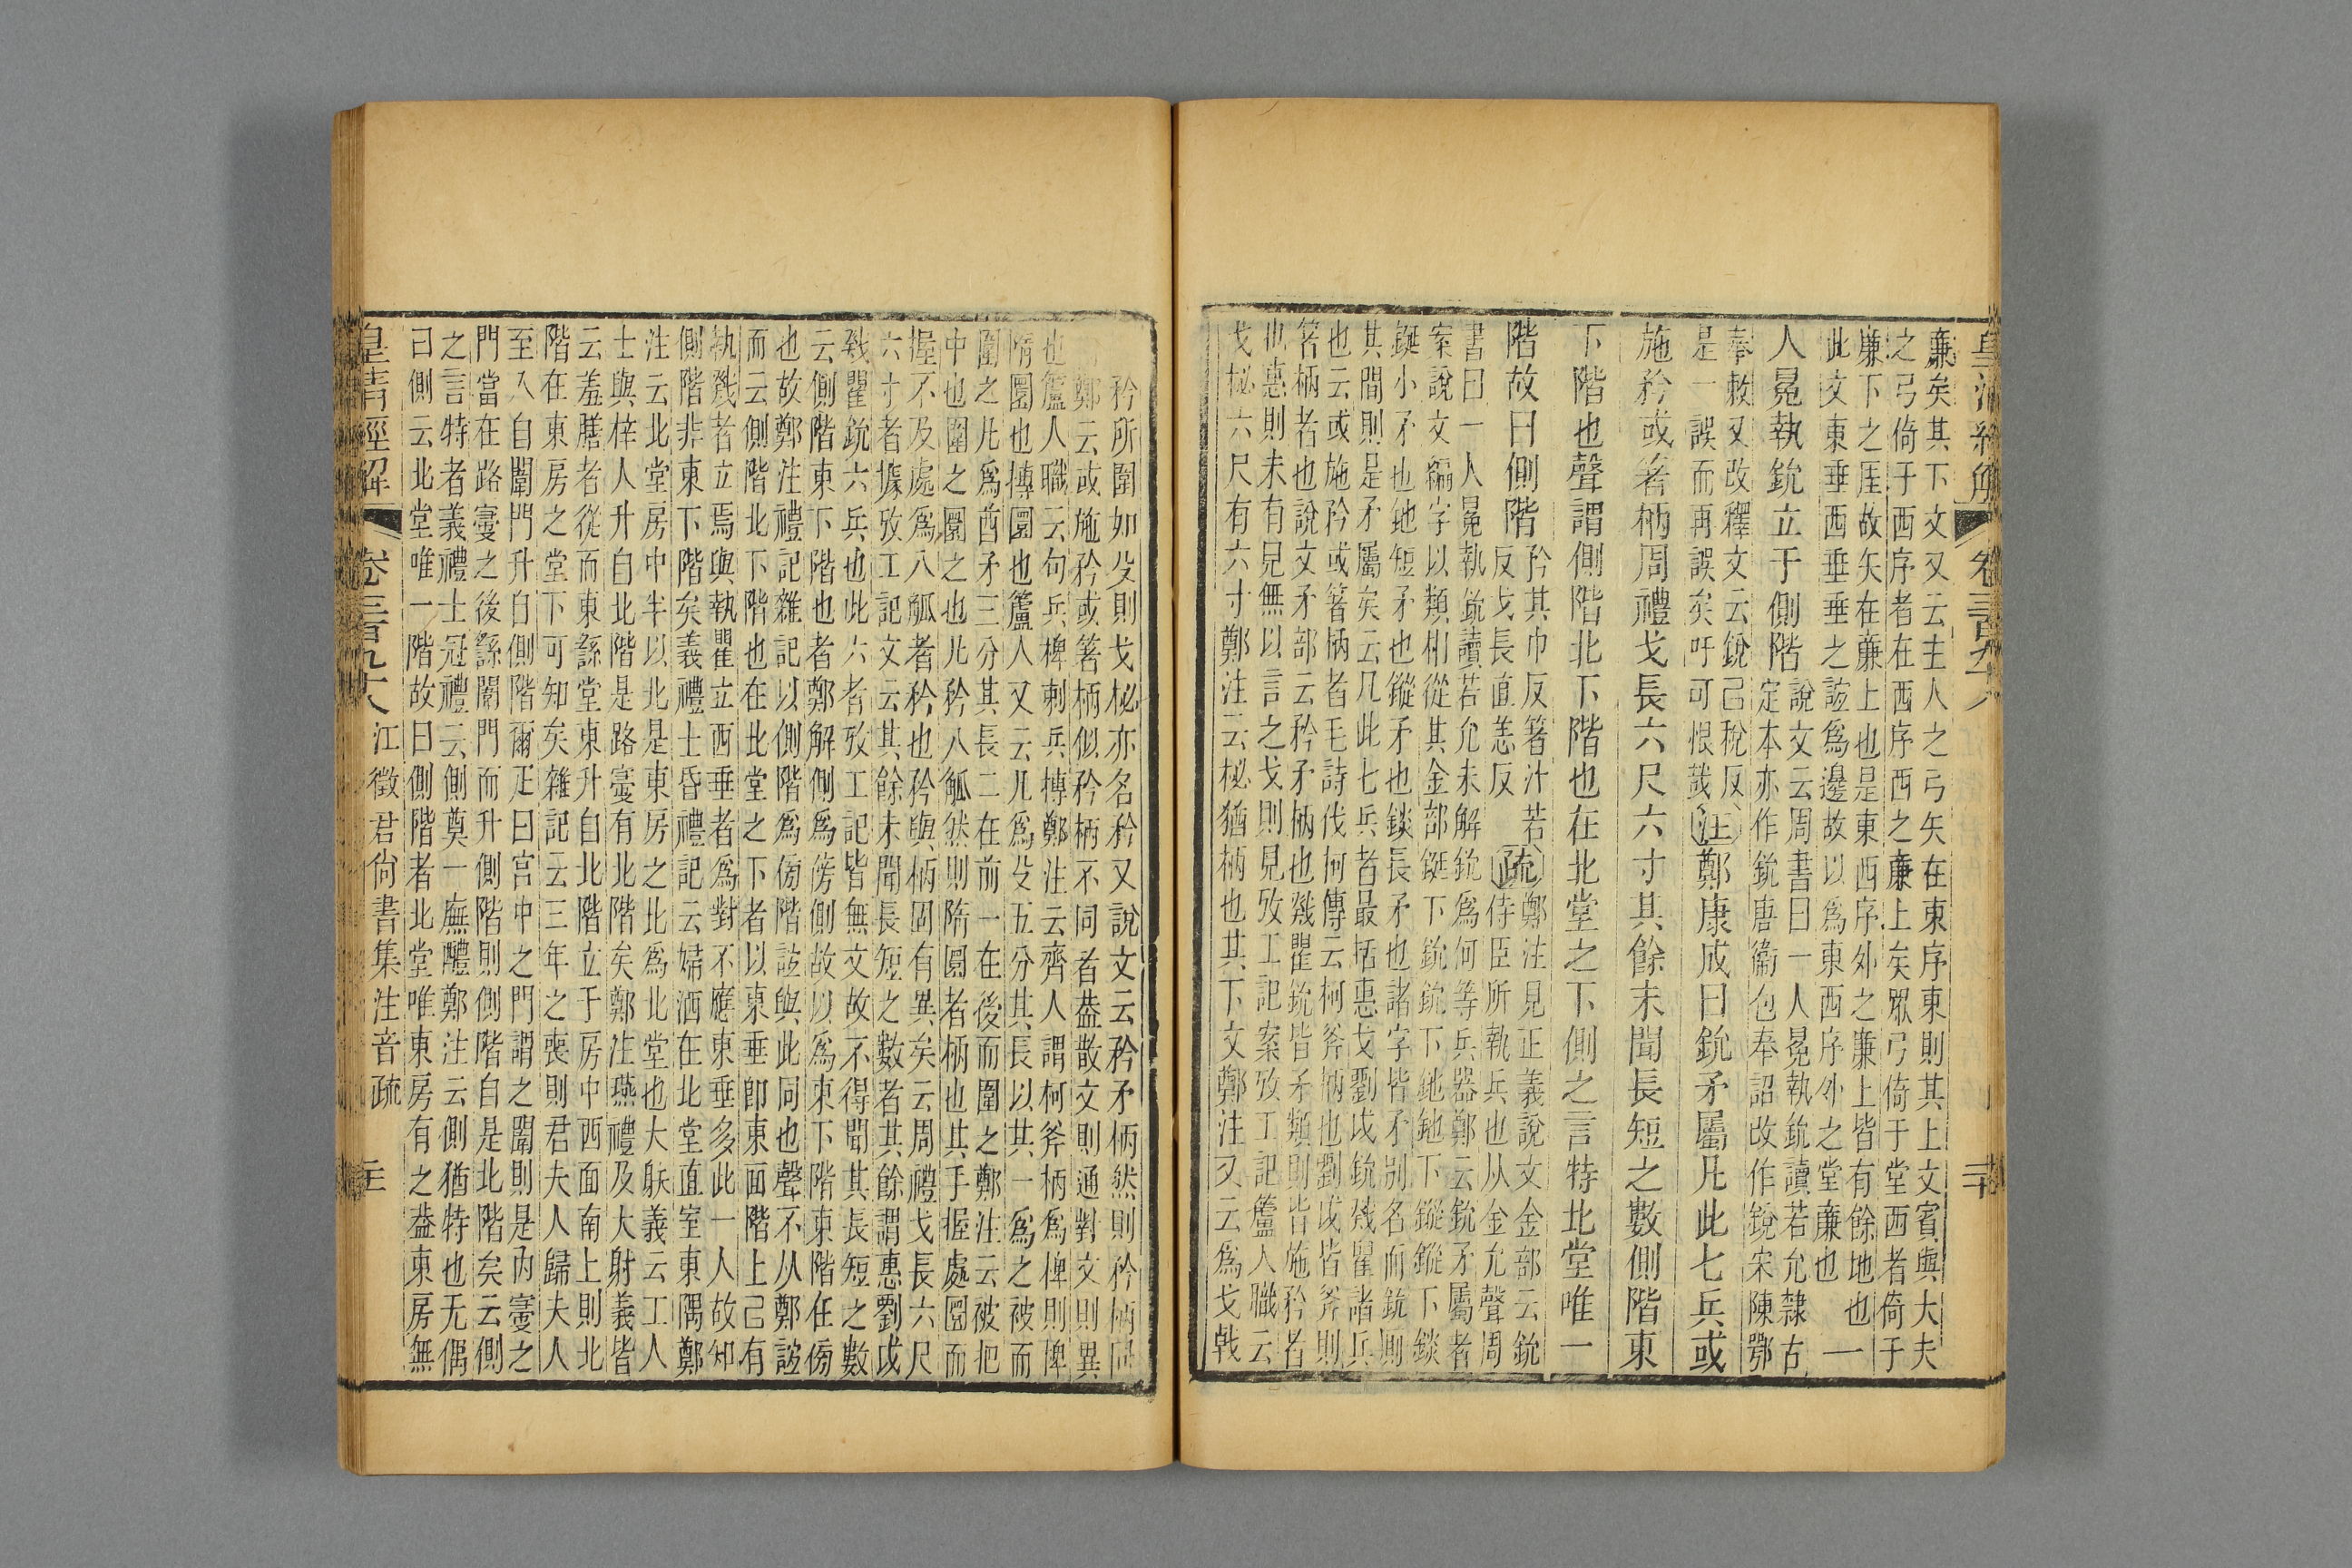 皇清經解
卷三百九十八
廉矣其下文又云主人之弓矢在東序東則其上文賓與大夫
之弓倚于西序者在西序西之廉上矣眾弓倚于堂西者倚于
廉下之厓故矢在廉上也是東西序外之廉上皆有餘地也一
此文東垂西垂垂之誼為邊故以為東西序外之堂廉也
人冕執鈗立于側階
說文云周書曰一人冕執鈗讀若允隸古
定本亦作鈗唐衞包奉詔改作銳宋陳鄂
奉敕又改釋文云銳己稅反
是一誤而再誤矣吁可恨哉
注鄭康成曰鈗矛屬凡此七兵或
施矜或箸柄周禮戈長六尺六寸其餘未聞長短之數側階東
下階也聲謂側階北下階也在北堂之下側之言特北堂唯一
階故曰側階
矜其巾反箸汁若
反戈長直恙反
疏
鄭注見正義說文金部云鈗
侍臣所執兵也从金允聲周
書曰一人冕執鈗讀若允未解鈗為何等兵器鄭云鈗矛屬者
案說文編字以類相從其金部鋋下鈗鈗下鉇鉇下鏦鏦下錟
鋋小矛也鉇短矛也鏦矛也錟長矛也諸字皆矛別名而鈗廁
其間則是矛屬矣云凡此七兵者最括惠戈劉戉鈗戣瞿諸兵
也云或施矜或箸柄者毛詩伐柯傳云柯斧柄也劉戉皆斧則
箸柄者也說文矛部云矜矛柄也戣瞿鈗皆矛類則皆施矜者
也惠則未有見無以言之戈則見攷工記案攷工記籚人職云
戈柲六尺有六寸鄭注云柲猶柄也其下文鄭注又云為戈戟
矜所圍如殳則戈柲亦名矜又說文云矜矛柄然則矜柄同
鄭云或施矜或箸柄似矜柄不同者葢散文則通對文則異
也籚人職云句兵椑刺兵摶鄭注云齊人謂柯斧柄為椑則椑
隋圜也摶圜也籚人又云凡為殳五分其長以其一為之被而
圍之凡為酋矛三分其長二在前一在後而圍之鄭注云被把
中也圍之圜之也凡矜八觚然則隋圜者柄也其手握處圜而
握不及處為八觚者矜也矜與柄固有異矣云周禮戈長六尺
六寸者據攷工記文云其餘未聞長短之數者其餘謂惠劉戉
戣瞿鈗六兵也此六者攷工記皆無文故不得聞其長短之數
云側階東下階也者鄭解側為傍側故以為東下階東階在傍
也故鄭注禮記雜記以側階為傍階誼與此同也聲不从鄭誼
而云側階北下階也在此北堂之下者以東垂卽東面階上己有
執戣者立焉與執瞿立西垂者為對不應東垂多此一人故知
側階非東下階矣義禮士昏禮記云婦洒在北堂直室東隅鄭
注云北堂房中半以北是東房之北為北堂也大躲義云工人
士與梓人升自北階是路寢有北階矣鄭注燕禮及大射義皆
云羞膳者從而東繇堂東升自北階立于房中西面南上則北
階在東房之堂下可知矣雜記云三年之喪則君夫人歸夫人
至入自闈門升自側階爾疋曰宮中之門謂之闈則是內寢之
門當在路寢之後繇闈門而升側階則側階自是北階矣云側
之言特者義禮士冠禮云側奠一廡醴鄭注云側猶特也无偶
曰側云北堂唯一階故曰側階者北堂唯東房有之葢東房無
皇清經解
卷三百九十八
江徵君尙書集注音疏